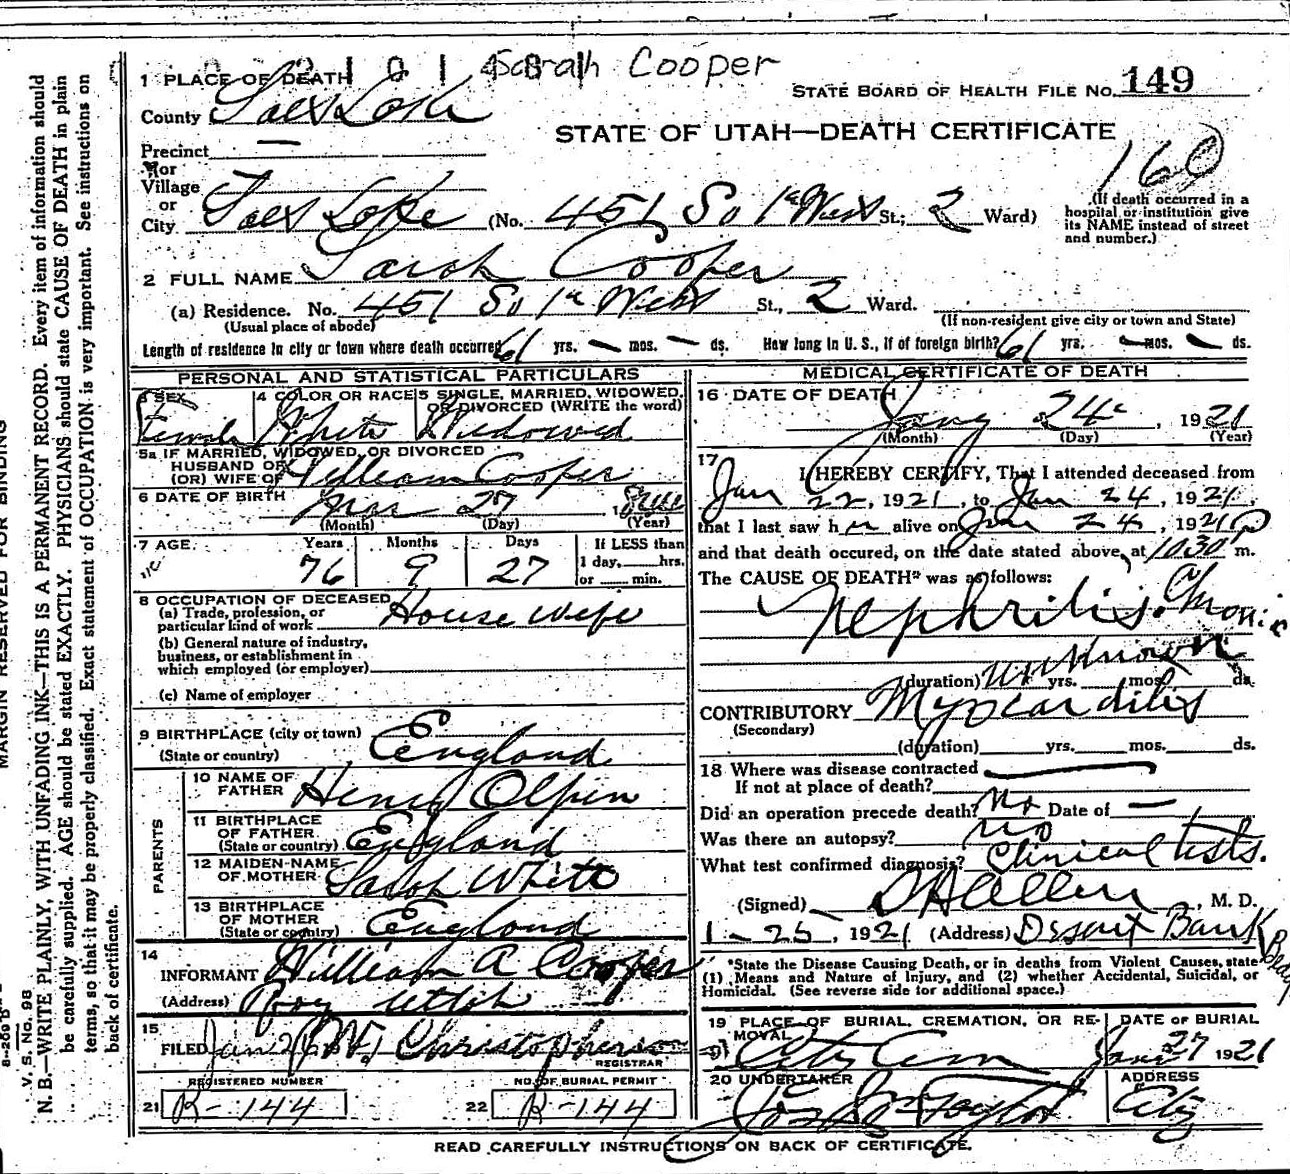 Sarah Cooper
1 PLACE OF DEATH
STATE BOARD OF HEALTH FILE No. 149
County Salt Lake
STATE OF UTAH—DEATH CERTIFICATE
Precinct —
160
or
Village
or
City Salt Lake (No. 451 So 1st West St.; 2 Ward)
(If death occurred in a
hospital or institution give
its NAME instead of street
and number.)
2 FULL NAME Sarah Cooper
(a) Residence. No. 451 So 1st West St., 2 Ward.
(Usual place of abode)
(If non-resident give city or town and State)
Length of residence in city or town where death occurred 61 yrs. — mos. — ds. How long in U. S., if of foreign birth? 61 yrs. — mos. — ds.
PERSONAL AND STATISTICAL PARTICULARS
3 SEX
Female
4 COLOR OR RACE
White
5 SINGLE, MARRIED, WIDOWED,
OR DIVORCED (WRITE the word)
Widowed
5a IF MARRIED, WIDOWED, OR DIVORCED
HUSBAND OF
(OR) WIFE OF William Cooper
6 DATE OF BIRTH
Mar 27
(Month) (Day) (Year)
7 AGE
Years Months Days
76 9 27
If LESS than
1 day, hrs.
or min.
8 OCCUPATION OF DECEASED
(a) Trade, profession, or
particular kind of work House wife
(b) General nature of industry,
business, or establishment in
which employed (or employer)
(c) Name of employer
9 BIRTHPLACE (city or town)
(State or country) England
PARENTS
10 NAME OF
FATHER Henry Olpin
11 BIRTHPLACE
OF FATHER
(State or country) England
12 MAIDEN-NAME
OF MOTHER Sarah White
13 BIRTHPLACE
OF MOTHER
(State or country) England
14
INFORMANT William A Cooper
(Address) Roy Utah
15
FILED Jan 26 Christopherson
REGISTRAR
REGISTERED NUMBER
21 R-144
NO. OF BURIAL PERMIT
22 R-144
MEDICAL CERTIFICATE OF DEATH
16 DATE OF DEATH
Jany 24 , 1921
(Month) (Day) (Year)
17
I HEREBY CERTIFY, That I attended deceased from
Jan 22, 1921, to Jan 24, 1921,
that I last saw her alive on Jan 24, 1921
and that death occured, on the date stated above, at 1030 P m.
The CAUSE OF DEATH* was as follows:
Nephritis. Chronic
unknown
(duration) yrs. mos. ds.
CONTRIBUTORY Myocarditis
(Secondary)
(duration) yrs. mos. ds.
18 Where was disease contracted
If not at place of death?
Did an operation precede death? No Date of —
Was there an autopsy? No
What test confirmed diagnosis? Clinical tests.
(Signed) D H Allen, M. D.
1-25, 1921 (Address) Desert Bank Bldg
*State the Disease Causing Death, or in deaths from Violent Causes, state
(1) Means and Nature of Injury, and (2) whether Accidental, Suicidal, or
Homicidal. (See reverse side for additional space.)
19 PLACE OF BURIAL, CREMATION, OR RE-
MOVAL
City Cem
DATE OF BURIAL
Jan 27 1921
20 UNDERTAKER
Taylor
ADDRESS
City
READ CAREFULLY INSTRUCTIONS ON BACK OF CERTIFICATE.
MARGIN RESERVED FOR BINDING
V. S. No. 98
N. B.—WRITE PLAINLY, WITH UNFADING INK—THIS IS A PERMANENT RECORD. Every item of information should
be carefully supplied. AGE should be stated EXACTLY. PHYSICIANS should state CAUSE OF DEATH in plain
terms, so that it may be properly classified. Exact statement of OCCUPATION is very important. See instructions on
back of certificate.